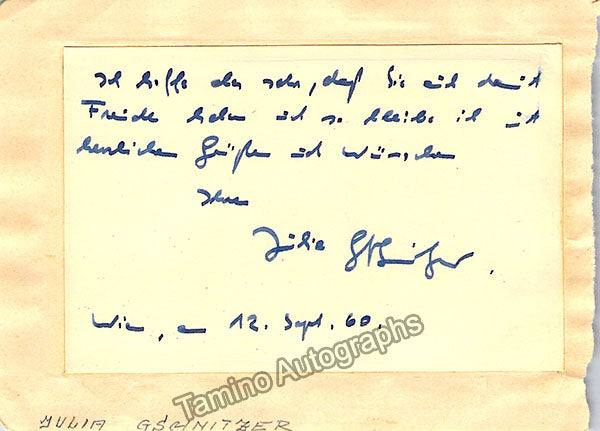 Ich hoffe aber sehr, daß Sie auch damit
Freude haben und so bleibe ich mit
herzlichen Grüßen und Wünschen
Ihre
Julia Gschnitzer.
Wien, am 12. Sept. 60.
Tamino Autographs
JULIA GSCHNITZER